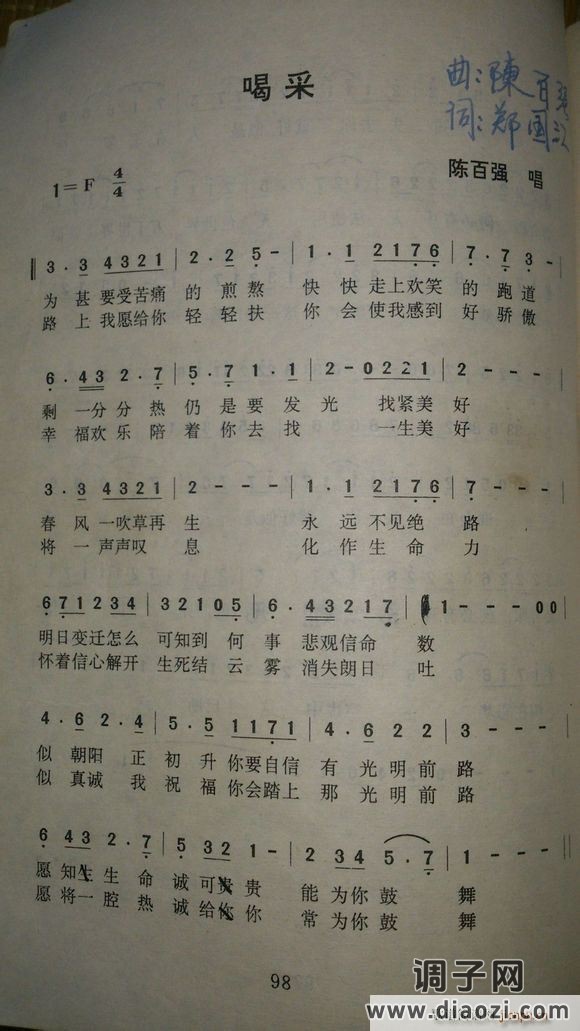 喝采
曲：陳百强
词：郑国江
陈百强 唱
1=F 4/4
‖3.3 4321｜2.2 5-｜1.1 2176｜7.7 3-
为甚要受苦痛的煎熬 快快走上欢笑的跑道
路上我愿给你轻轻扶 你会使我感到好骄傲
6.43 2.7｜5.7 1.1｜2-0221｜2---
剩一分分热仍是要发光 找紧美好
幸福欢乐陪着你去找 一生美好
3.3 4321｜2---｜1.1 2176｜7---
春风一吹草再生 永远不见绝路
将一声声叹息 化作生命力
671234｜32105｜6.43217｜1--00
明日变迁怎么 可知到何事悲观信命数
怀着信心解开 生死结云雾消失朗日吐
4.6 2.4｜5.5 1171｜4.6 22｜3---
似朝阳正初升你要自信有光明前路
似真诚我祝福你会踏上那光明前路
6 43 2.7｜5 32 1-｜2 34 5.7｜1---
愿知生生命诚可贵贵 能为你鼓舞
愿将一腔热诚给你你 常为你鼓舞
98
调子网
www.diaozi.com